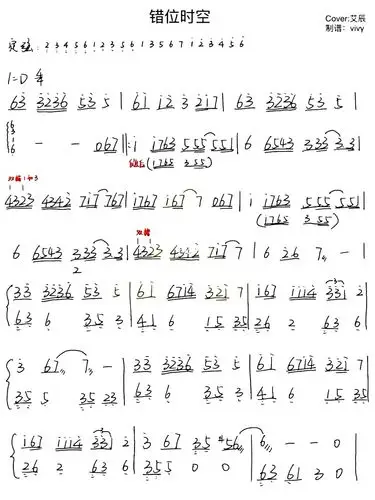 错位时空
Cover:艾辰
制谱：vivy
定弦: 2 3 4 5 6 1 2 3 5 6 1 3 5 6 7 1 2 3 4 5 6
1=D
63 3236 53 5 | 61 12 3 217 | 63 3236 53 5 |
6 - - 067 ||: 1 1763 555 551 | 6 6543 333 33 |
(1765 355)
双摇 1和3
4323 4342 717 767 | 1767 167 7 067 | 1 1763 555 551 |
(1765 355)
双摇
6 6543 333 33 | 4323 4342 717 | 6 26 7 - |
2
33 3236 53 5 | 61 6714 321 7 | 167 1114 331 2
63 6 35 3 | 41 6 15 35 | 26 2 63 6
3 67 7 - | 33 3236 53 5 | 61 6714 321 7
35 5 35 23 | 63 6 35 3 | 41 6 15 35
167 1114 33 2 | 3 67 35 456 | 6 - - 0
26 2 63 6 | 35 5 0 0 | 63 61 3 0